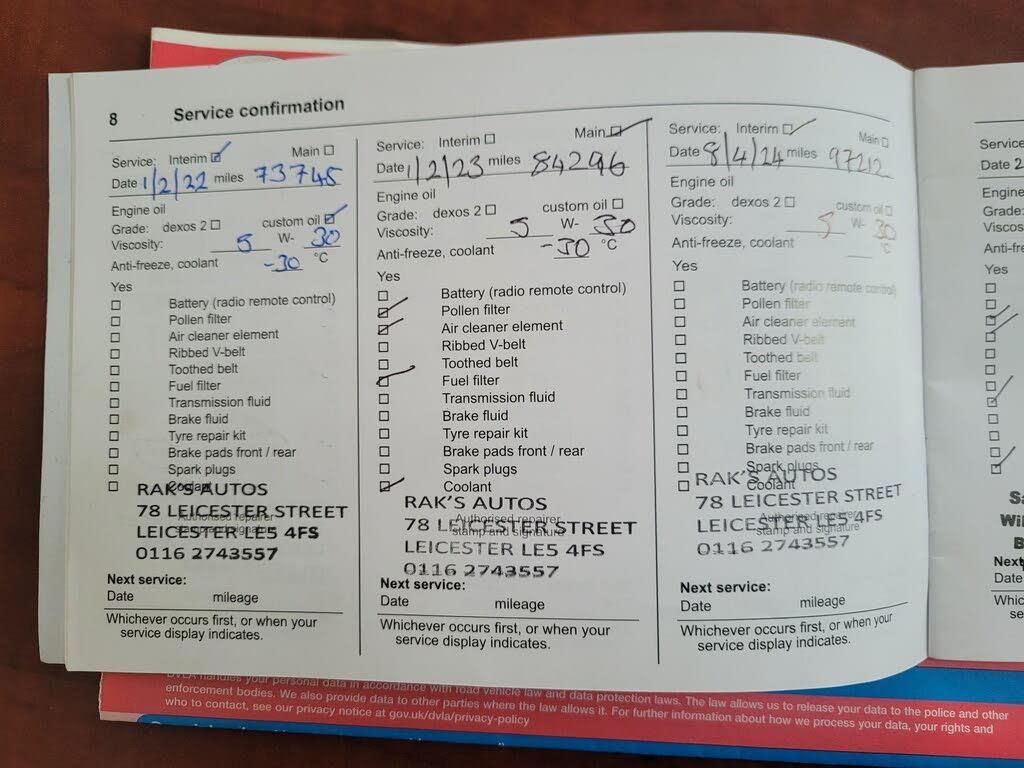 8 Service confirmation
Service: Interim ☑ Main ☐
Date 1/2/22 miles 73745
Engine oil
Grade: dexos 2 ☐ custom oil ☑
Viscosity: 5 W- 30
Anti-freeze, coolant -30 °C
Yes
☐ Battery (radio remote control)
☐ Pollen filter
☐ Air cleaner element
☐ Ribbed V-belt
☐ Toothed belt
☐ Fuel filter
☐ Transmission fluid
☐ Brake fluid
☐ Tyre repair kit
☐ Brake pads front / rear
☐ Spark plugs
☐ Coolant
RAK'S AUTOS
78 LEICESTER STREET
Authorised repairer
stamp and signature
LEICESTER LE5 4FS
0116 2743557
Next service:
Date mileage
Whichever occurs first, or when your
service display indicates.
Service: Interim ☐ Main ☑
Date 1/2/23 miles 84296
Engine oil
Grade: dexos 2 ☐ custom oil ☐
Viscosity: 5 W- 30
Anti-freeze, coolant -30 °C
Yes
☐ Battery (radio remote control)
☑ Pollen filter
☑ Air cleaner element
☐ Ribbed V-belt
☐ Toothed belt
☑ Fuel filter
☐ Transmission fluid
☐ Brake fluid
☐ Tyre repair kit
☐ Brake pads front / rear
☐ Spark plugs
☑ Coolant
RAK'S AUTOS
78 LEICESTER STREET
Authorised repairer
stamp and signature
LEICESTER LE5 4FS
0116 2743557
Next service:
Date mileage
Whichever occurs first, or when your
service display indicates.
Service: Interim ☑ Main ☐
Date 8/4/24 miles 97212
Engine oil
Grade: dexos 2 ☐ custom oil ☐
Viscosity: 5 W- 30
Anti-freeze, coolant °C
Yes
☐ Battery (radio remote control)
☐ Pollen filter
☐ Air cleaner element
☐ Ribbed V-belt
☐ Toothed belt
☐ Fuel filter
☐ Transmission fluid
☐ Brake fluid
☐ Tyre repair kit
☐ Brake pads front / rear
☐ Spark plugs
☐ Coolant
RAK'S AUTOS
78 LEICESTER STREET
Authorised repairer
stamp and signature
LEICESTER LE5 4FS
0116 2743557
Next service:
Date mileage
Whichever occurs first, or when your
service display indicates.
Service
Date 2
Engine
Grade:
Yes
Next
Date
DVLA handles your personal data in accordance with road vehicle law and data protection laws. The law allows us to release your data to the police and other
enforcement bodies. We also provide data to other parties where the law allows it. For further information about how we process your data, your rights and
who to contact, see our privacy notice at gov.uk/dvla/privacy-policy